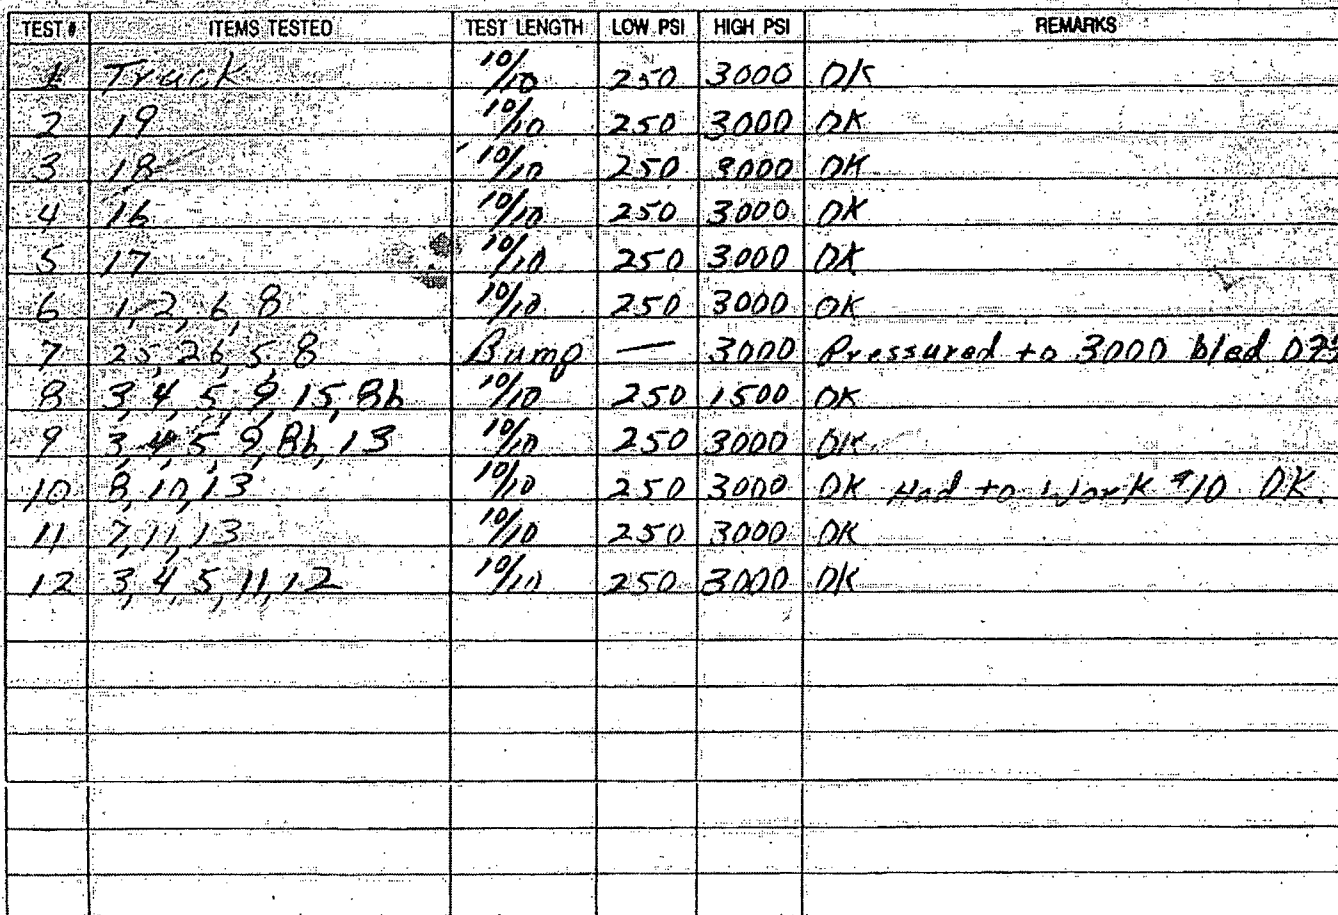 TEST # ITEMS TESTED TEST LENGTH LOW PSI HIGH PSI REMARKS
1 Truck 10/10 250 3000 OK
2 19 10/10 250 3000 OK
3 18 10/10 250 3000 OK
4 16 10/10 250 3000 OK
5 17 10/10 250 3000 OK
6 1, 2, 6, 8 10/10 250 3000 OK
7 25, 26, 5, 8 Bump — 3000 Pressured to 3000 bled
8 3, 4, 5, 9, 15, 8b 10/10 250 1500 OK
9 3, 4, 5, 9, 8b, 13 10/10 250 3000 OK
10 8, 10, 13 10/10 250 3000 OK Had to Work #10 OK.
11 7, 11, 13 10/10 250 3000 OK
12 3, 4, 5, 11, 12 10/10 250 3000 OK